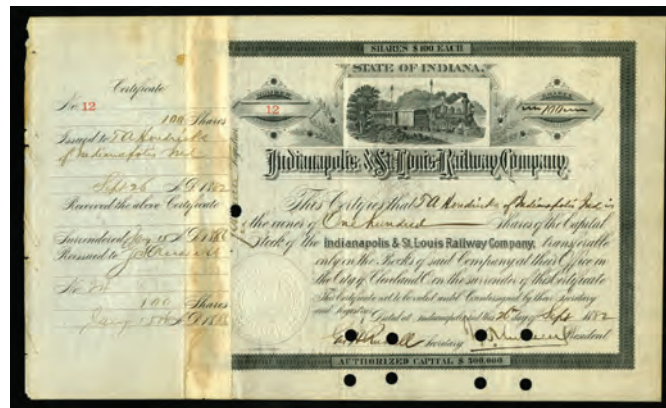 Certificate
No. 12
100 Shares
Issued to T A Hendricks
of Indianapolis Ind
Sept 26 A.D. 1882
Received the above Certificate
Surrendered Jany 15 A.D. 1883
Reissued to
No.
100 Shares
Jany 15th A.D. 1883
SHARES $100 EACH
STATE OF INDIANA.
NUMBER
12
Indianapolis & St. Louis Railway Company.
This Certifies that T A Hendricks of Indianapolis Ind is
the owner of One Hundred Shares of the Capital
Stock of the Indianapolis & St. Louis Railway Company, transferable
only on the Books of said Company at their Office in
the City of Cleveland O. on the surrender of this Certificate
This Certificate not to be valid until Countersigned by their Secretary
and Registry
Dated at Indianapolis Ind this 26th day of Sept 1882
Secretary
President
AUTHORIZED CAPITAL $ 500,000